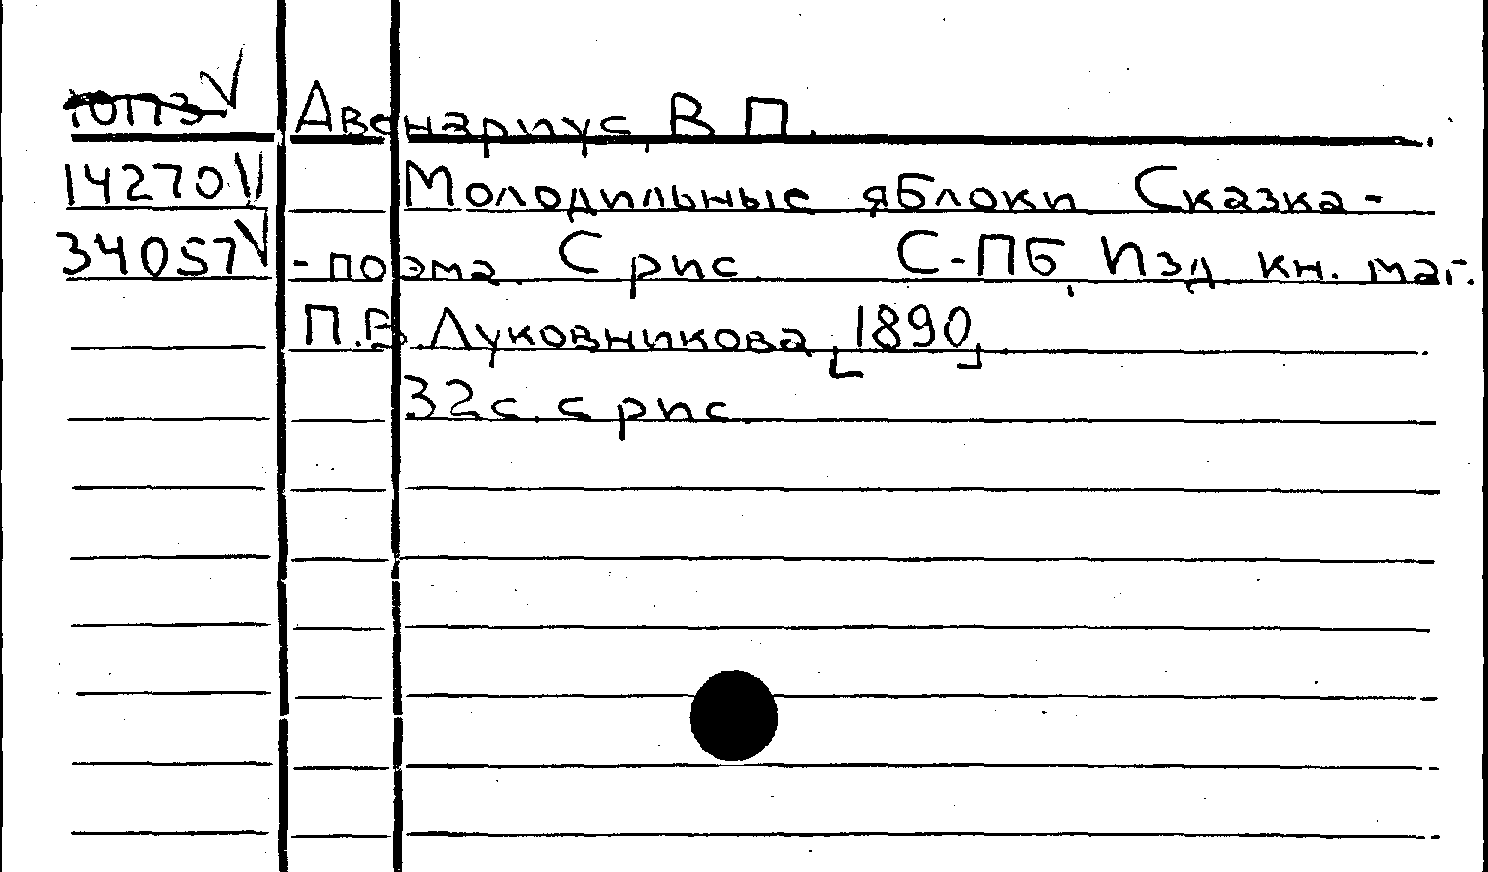 10113 V Авенариус, В. П.
14270 V Молодильные яблоки Сказка-
34057 V -поэма. С рис. С-ПБ, Изд. кн. маг.
П.В. Луковникова, [1890]
32с. с рис.